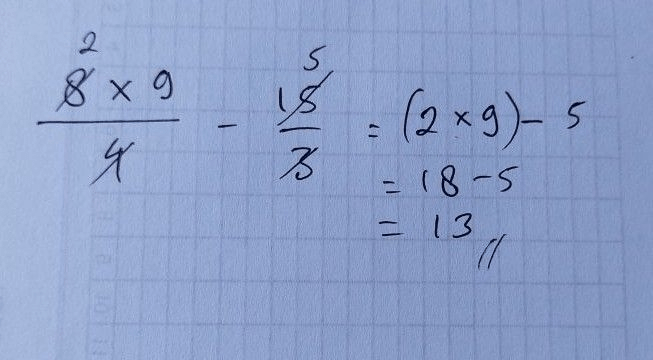 2 5
8 × 9 / 4 - 15 / 3 = (2 × 9) - 5
= 18 - 5
= 13 //